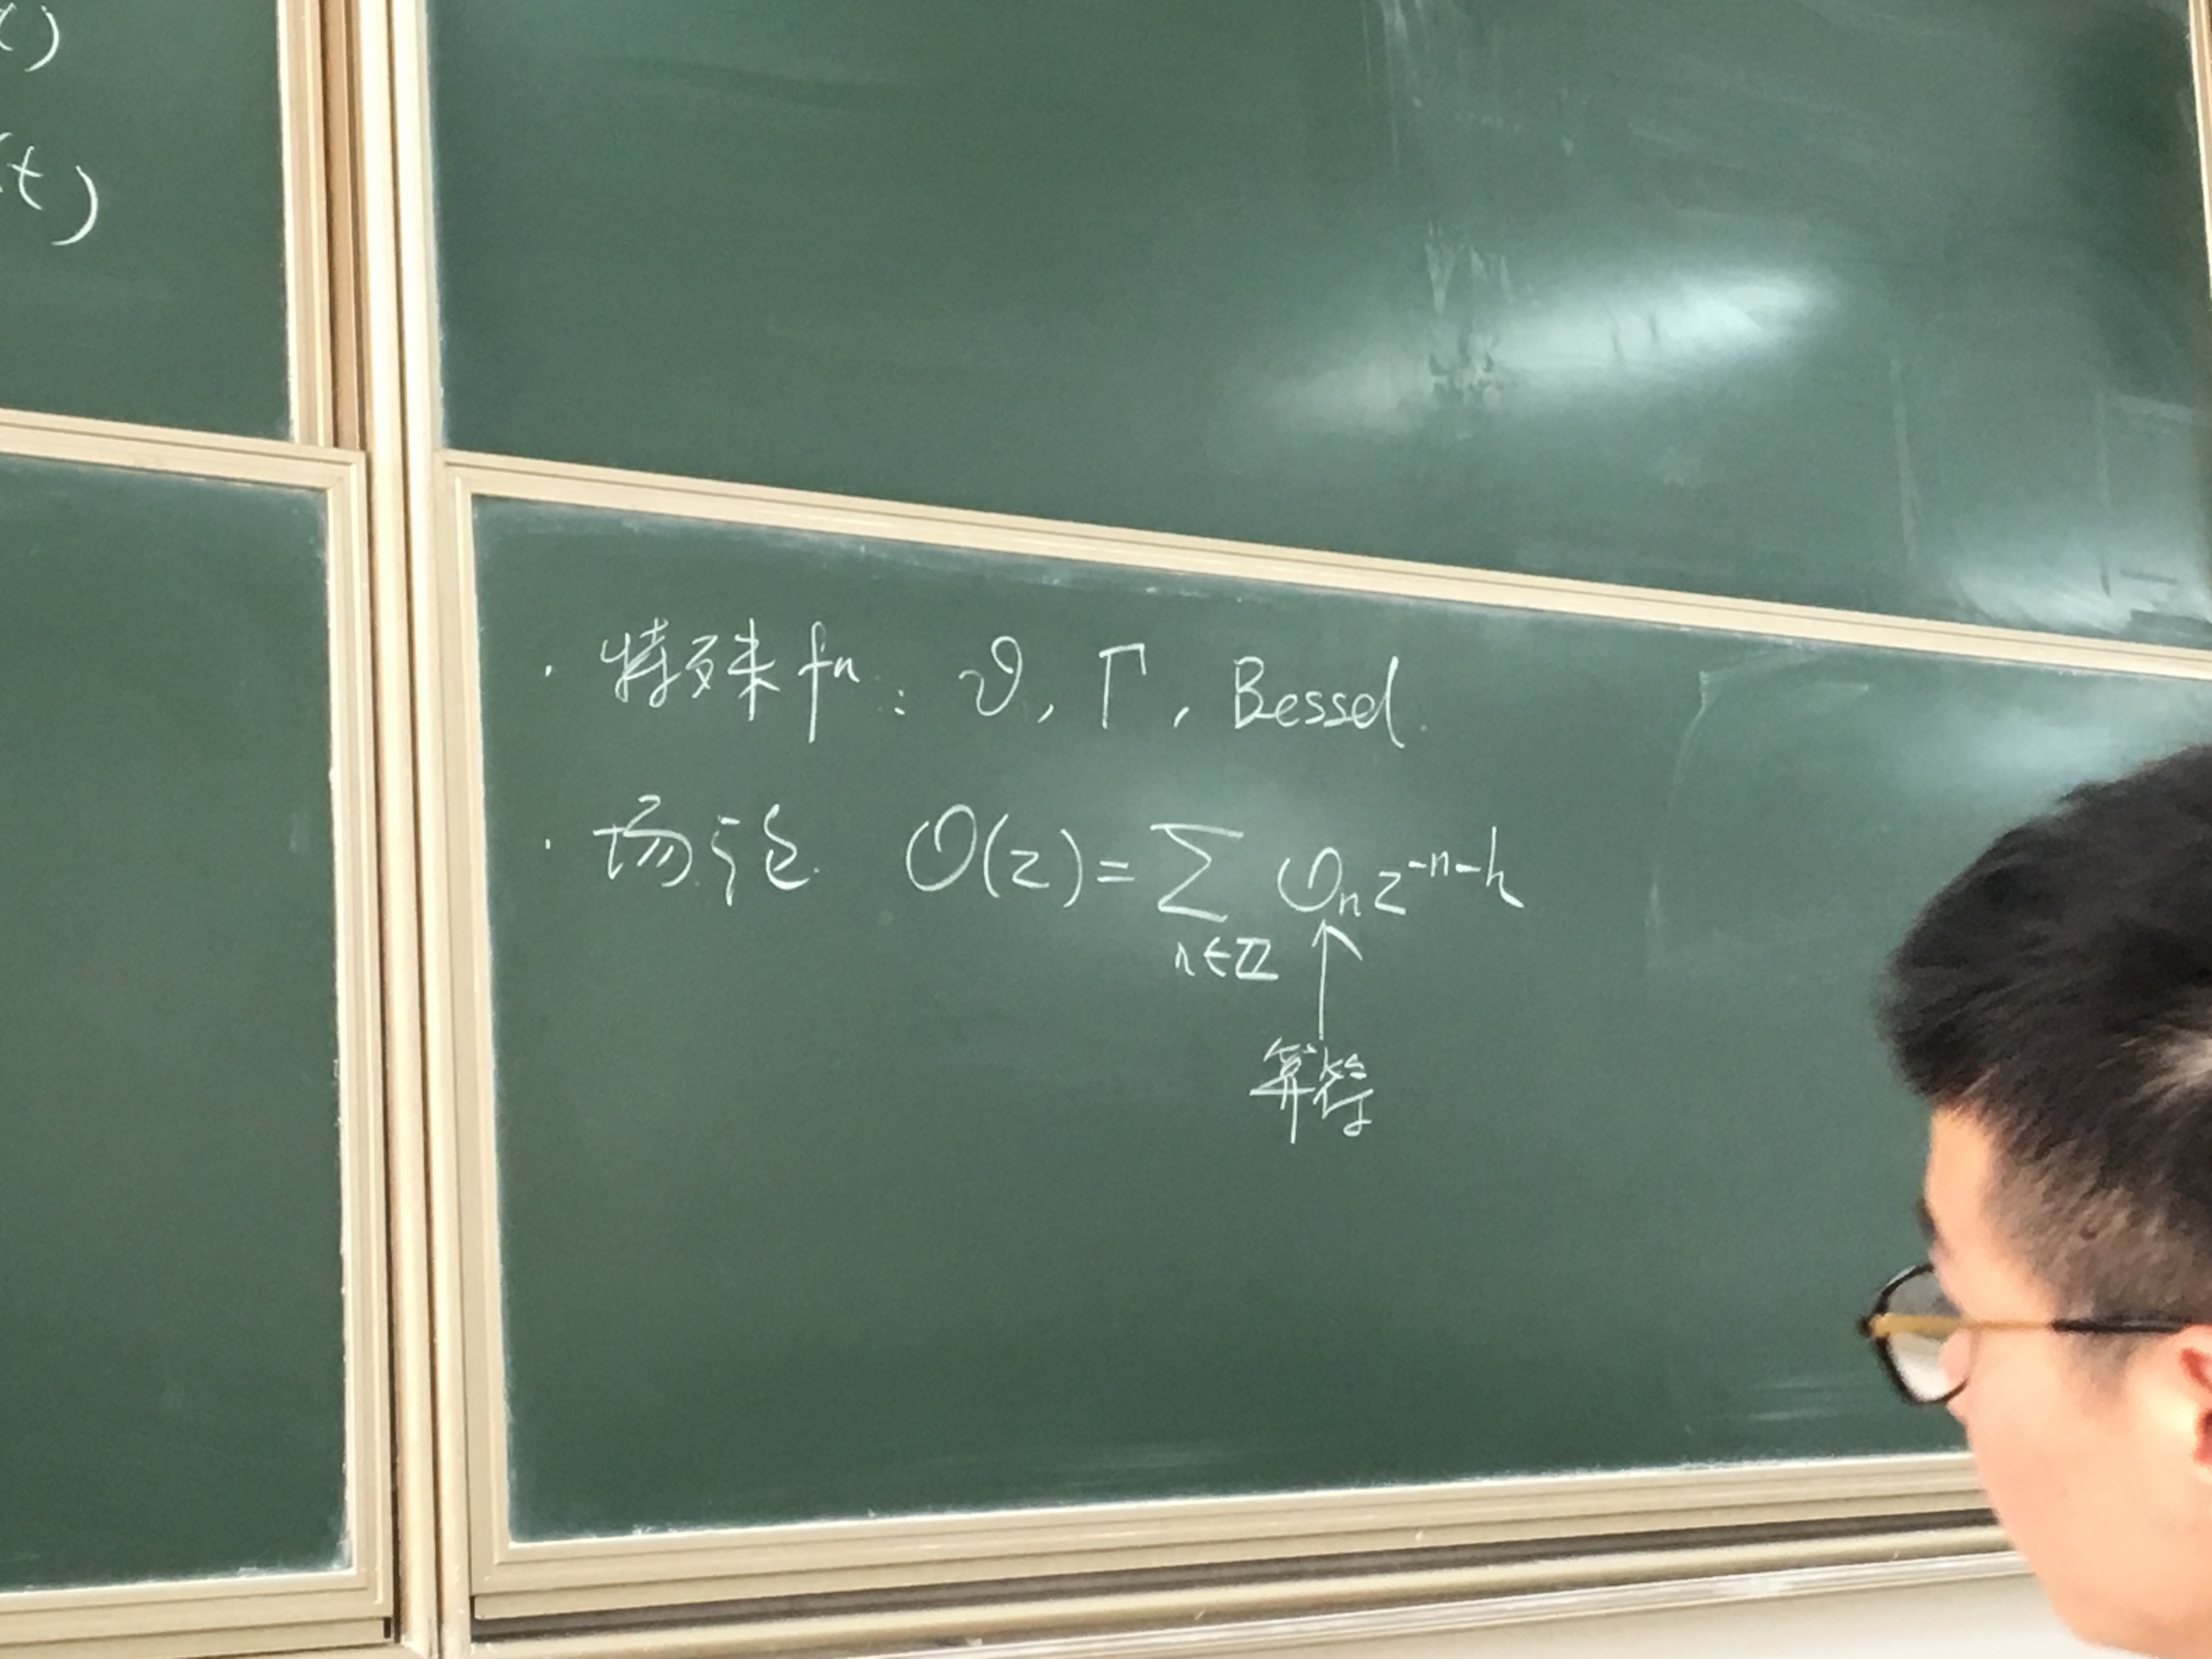 t)
· 特殊 fn : ϑ, Γ, Bessel.
· 场论 O(z) = ∑ Oₙ z⁻ⁿ⁻ʰ
n∈ℤ
↑
算符